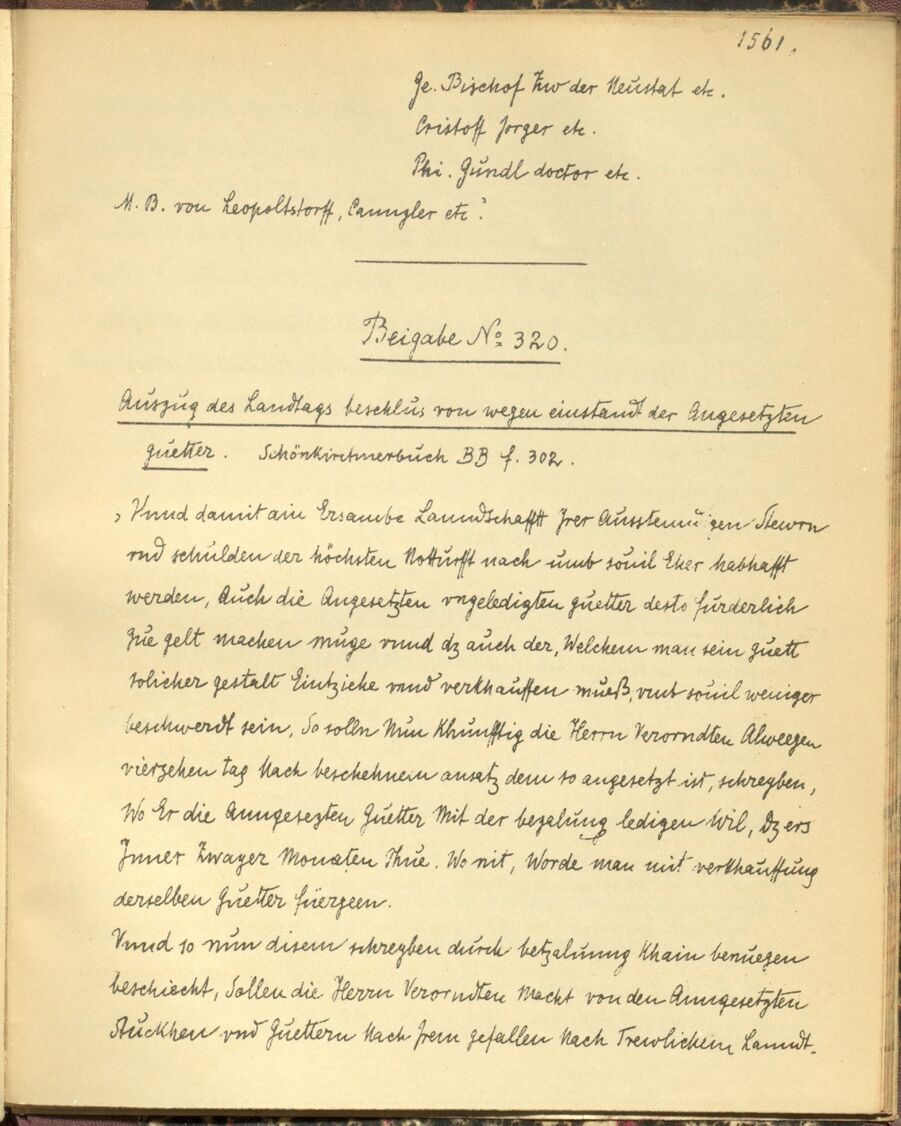 1561.
Ge. Bischof Zw der Neustat etc.
Cristoff Jorger etc.
Phi. Gundl doctor etc.
M. B. von Leopoltstorff, Canngler etc.
Beigabe No 320.
Auszug des Landtags beschlus von wegen einstandt der Angesetzten
guetter. Schönkirchnerbuch BB f. 302.
Vnnd damit ain Ersambe Lanndschafft Irer Ausstennigen Stewrn
vnd schulden der höchsten Notturfft nach umb souil Eher habhafft
werden, Auch die Angesetzten vngeledigten guetter desto furderlich
Zue gelt machen muge vnnd dz auch der, Welchem man sein guett
solicher gestalt Eintziehe vnnd verkhauffen mueß, vmb souil weniger
beschwerdt sein, So solln Nun Khunfftig die Herrn Verorndten Alweegen
vierzehen tag Nach beschehnem ansatz dem so angesetzt ist, schreyben,
Wo Er die Anngesezten Guetter Mit der bezalung ledigen Wil, Dz ers
Inner Zwayer Monaten Thue. Wo nit, Worde man mit verkhauffung
derselben Guetter füergeen.
Vnnd so nun disem schreyben durch betzalunng Khain benuegen
beschiecht, Sollen die Herrn Verorndten Macht von den Anngesetzten
Stuckhen vnd Guettern Nach Irem gefallen Nach Trewlichem Lanndt-